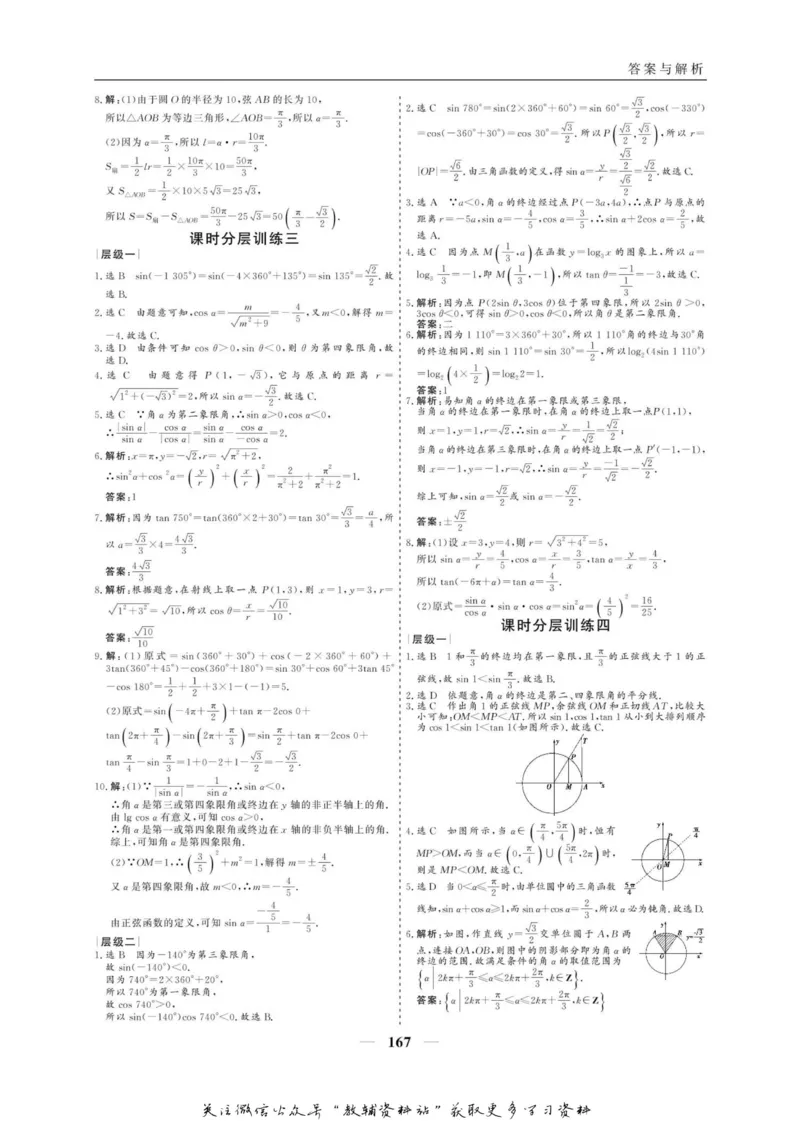 答案与解析
8.解:(1)由于圆O的半径为10,弦AB的长为10,
所以△AOB为等边三角形,∠AOB=π/3,所以α=π/3.
(2)因为α=π/3,所以l=α·r=10π/3.
S扇=1/2lr=1/2×10π/3×10=50π/3,
又S△AOB=1/2×10×5√3=25√3,
所以S=S扇-S△AOB=50π/3-25√3=50(π/3-√3/2).
课时分层训练三
层级一
1.选B sin(-1 305°)=sin(-4×360°+135°)=sin 135°=√2/2.故
选B.
2.选C 由题意可知,cos α=m/√(m²+9)=-4/5,又m<0,解得m=
-4.故选C.
3.选D 由条件可知cos θ>0,sin θ<0,则θ为第四象限角,故
选D.
4.选C 由题意得P(1,-√3),它与原点的距离r=
√(1²+(-√3)²)=2,所以sin α=-√3/2.故选C.
5.选C ∵角α为第二象限角,∴sin α>0,cos α<0,
∴|sin α|/sin α-cos α/|cos α|=sin α/sin α-cos α/-cos α=2.
6.解析:x=π,y=-√2,r=√(π²+2),
∴sin²α+cos²α=(y/r)²+(x/r)²=2/(π²+2)+π²/(π²+2)=1.
答案:1
7.解析:因为tan 750°=tan(360°×2+30°)=tan 30°=√3/3=a/4,所
以a=√3/3×4=4√3/3.
答案:4√3/3
8.解析:根据题意,在射线上取一点P(1,3),则x=1,y=3,r=
√(1²+3²)=√10,所以cos θ=x/r=√10/10.
答案:√10/10
9.解:(1)原式=sin(360°+30°)+cos(-2×360°+60°)+
3tan(360°+45°)-cos(360°+180°)=sin 30°+cos 60°+3tan 45°
-cos 180°=1/2+1/2+3×1-(-1)=5.
(2)原式=sin(-4π+π/2)+tan π-2cos 0+
tan(2π+π/4)-sin(2π+π/3)=sin π/2+tan π-2cos 0+
tan π/4-sin π/3=1+0-2+1-√3/2=-√3/2.
10.解:(1)∵1/|sin α|=-1/sin α,∴sin α<0,
∴角α是第三或第四象限角或终边在y轴的非正半轴上的角.
由lg cos α有意义,可知cos α>0,
∴角α是第一或第四象限角或终边在x轴的非负半轴上的角.
综上,可知角α是第四象限角.
(2)∵OM=1,∴(3/5)²+m²=1,解得m=±4/5.
又α是第四象限角,故m<0,∴m=-4/5.
由正弦函数的定义,可知sin α=(-4/5)/1=-4/5.
层级二
1.选B 因为-140°为第三象限角,
故sin(-140°)<0.
因为740°=2×360°+20°,
所以740°为第一象限角,
故cos 740°>0,
所以sin(-140°)cos 740°<0.故选B.
2.选C sin 780°=sin(2×360°+60°)=sin 60°=√3/2,cos(-330°)
=cos(-360°+30°)=cos 30°=√3/2.所以P(√3/2,√3/2),所以r=
|OP|=√6/2.由三角函数的定义,得sin α=y/r=(√3/2)/(√6/2)=√2/2.故选C.
3.选A ∵a<0,角α的终边经过点P(-3a,4a),∴点P与原点的
距离r=-5a,sin α=-4/5,cos α=3/5,∴sin α+2cos α=2/5,故
选A.
4.选C 因为点M(1/3,a)在函数y=log₃x的图象上,所以a=
log₃1/3=-1,即M(1/3,-1),所以tan θ=-1/(1/3)=-3,故选C.
5.解析:因为点P(2sin θ,3cos θ)位于第四象限,所以2sin θ>0,
3cos θ<0,可得sin θ>0,cos θ<0,所以角θ是第二象限角.
答案:二
6.解析:因为1 110°=3×360°+30°,所以1 110°角的终边与30°角
的终边相同,则sin 1 110°=sin 30°=1/2,所以log₂(4sin 1 110°)
=log₂(4×1/2)=log₂2=1.
答案:1
7.解析:易知角α的终边在第一象限或第三象限,
当角α的终边在第一象限时,在角α的终边上取一点P(1,1),
则x=1,y=1,r=√2,∴sin α=y/r=1/√2=√2/2;
当角α的终边在第三象限时,在角α的终边上取一点P′(-1,-1),
则x=-1,y=-1,r=√2,∴sin α=y/r=-1/√2=-√2/2.
综上可知,sin α=√2/2或sin α=-√2/2.
答案:±√2/2
8.解:(1)设x=3,y=4,则r=√(3²+4²)=5,
所以sin α=y/r=4/5,cos α=x/r=3/5,tan α=y/x=4/3,
所以tan(-6π+α)=tan α=4/3.
(2)原式=sin α/cos α·sin α·cos α=sin²α=(4/5)²=16/25.
课时分层训练四
层级一
1.选B 1和π/3的终边均在第一象限,且π/3的正弦线大于1的正
弦线,故sin 1<sin π/3.故选B.
2.选D 依题意,角α的终边是第二、四象限角的平分线.
3.选C 作出角1的正弦线MP,余弦线OM和正切线AT,比较大
小可知:OM<MP<AT.所以sin 1,cos 1,tan 1从小到大排列顺序
为cos 1<sin 1<tan 1(如图所示).故选C.
y
T
P
O M A x
4.选C 如图所示,当α∈(π/4,5π/4)时,恒有
MP>OM,而当α∈(0,π/4)∪(5π/4,2π)时,
则是MP<OM.故选C.
y
π/4
P
O M x
5π/4
5.选D 当0<α≤π/2时,由单位圆中的三角函数
线知,sin α+cos α≥1,而sin α+cos α=2/3,所以α必为钝角.故选D.
6.解析:如图,作直线y=√3/2交单位圆于A,B两
点,连接OA,OB,则图中的阴影部分即为角α的
终边的范围.故满足条件的角α的取值范围为
{α|2kπ+π/3≤α≤2kπ+2π/3,k∈Z}.
答案:{α|2kπ+π/3≤α≤2kπ+2π/3,k∈Z}
y
A B y=√3/2
O x
— 167 —
关注微信公众号“教辅资料站”获取更多学习资料